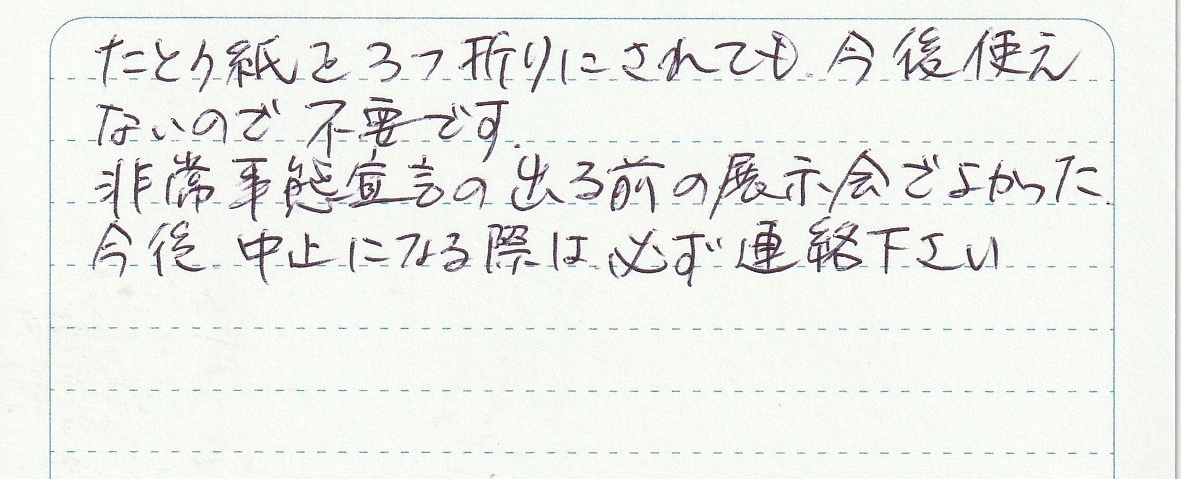 たとう紙を3つ折りにされても、今後使え
ないので不要です.
非常事態宣言の出る前の展示会でよかった.
今後、中止になる際は、必ず連絡下さい